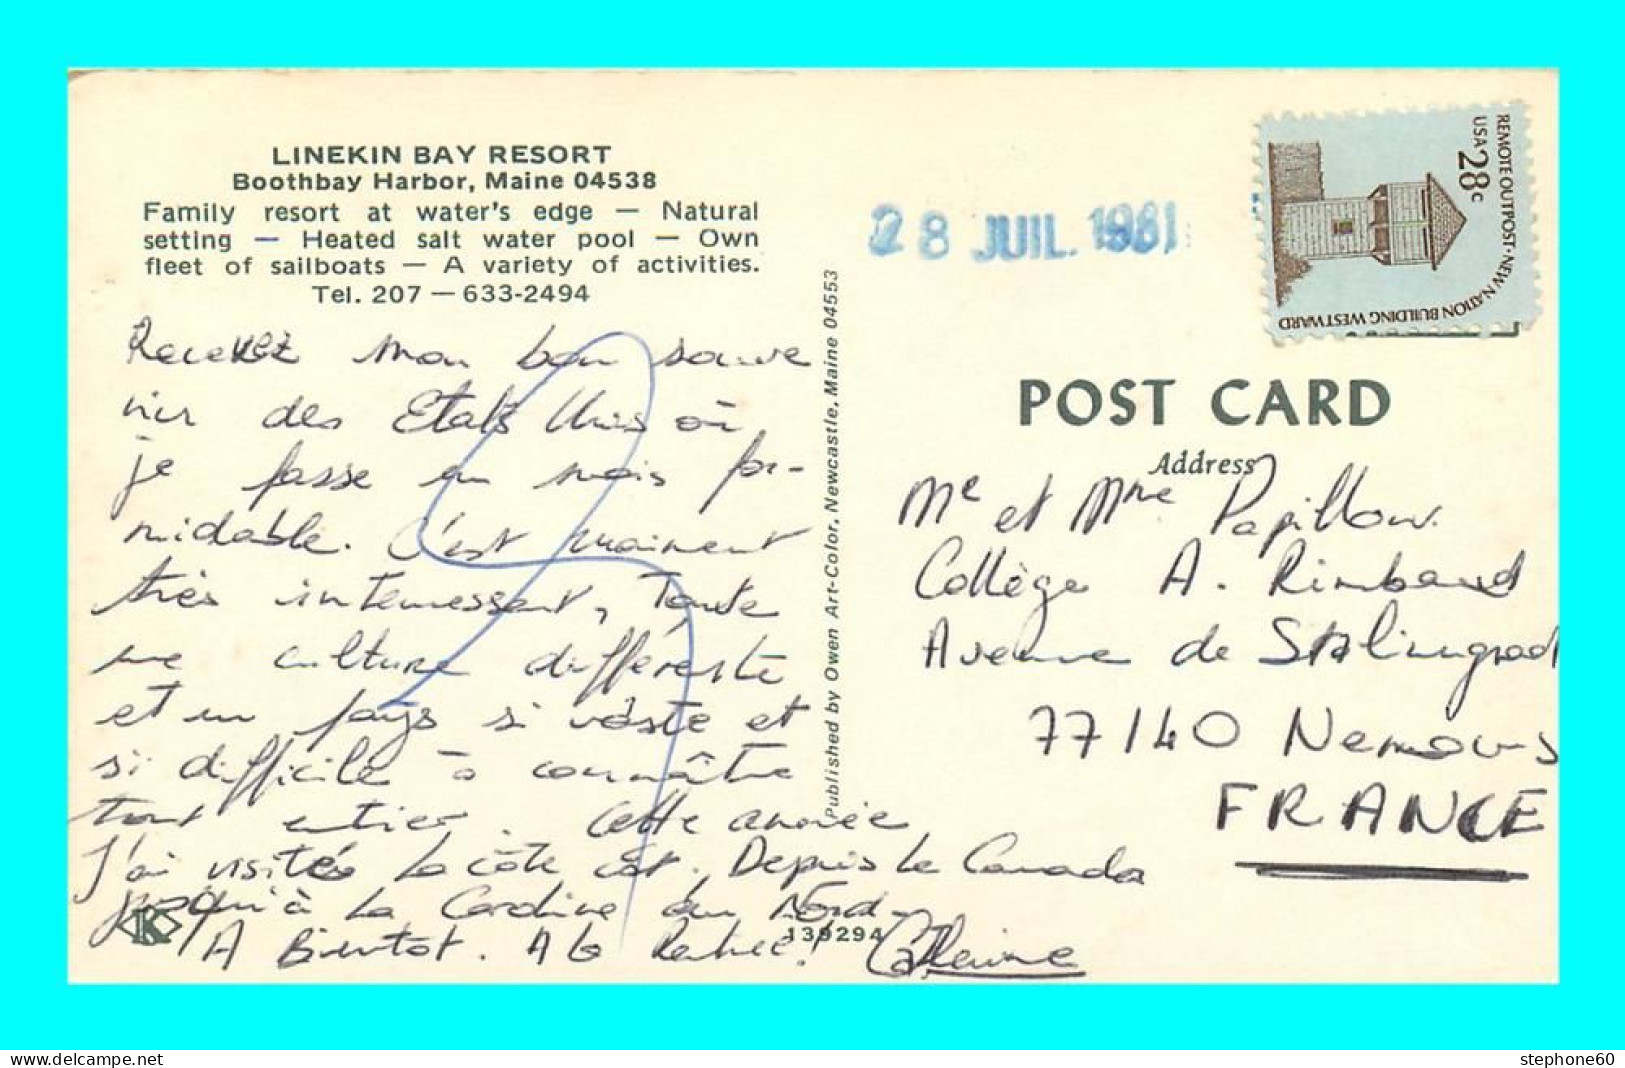 LINEKIN BAY RESORT
Boothbay Harbor, Maine 04538
Family resort at water's edge — Natural
setting — Heated salt water pool — Own
fleet of sailboats — A variety of activities.
Tel. 207 — 633-2494
Recevez mon bon souve
nir des Etats Unis où
je passe un mois for-
midable. C'est vraiment
très interressant, Toute
une culture différente
et un pays si vaste et
si difficile à connaître
tout entier. Cette année
J'ai visitée la côte est. Depuis le Canada
jusqu'à la Caroline du Nord
A Bientot. A la Rentrée! Catherine
139294
K
Published by Owen Art-Color, Newcastle, Maine 04553
28 JUIL. 1981
REMOTE OUTPOST·NEW NATION BUILDING WESTWARD
USA 28c
POST CARD
Address
Mr et Mme Papillon.
Collège A. Rimbaud
Avenue de Stalingrad
77140 Nemours
FRANCE
www.delcampe.net
stephone60